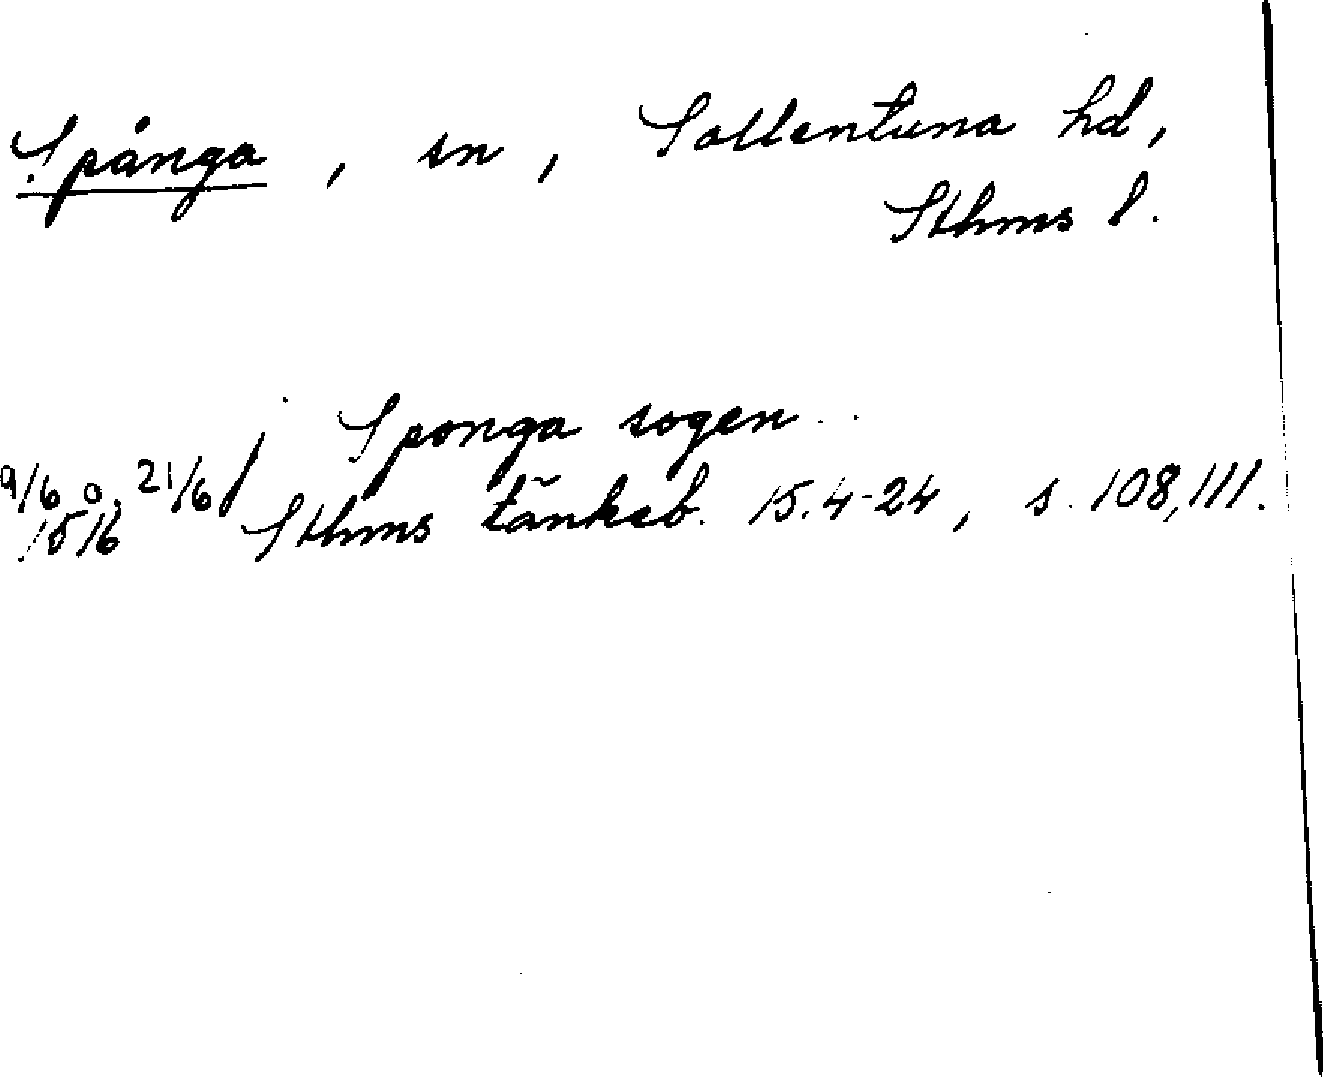 Spånga, sn, Sollentuna hd,
Sthms l.
Sponga sogen
9/6 o. 21/6
1516
Sthms tänkeb. 15.4-24, s. 108, 111.